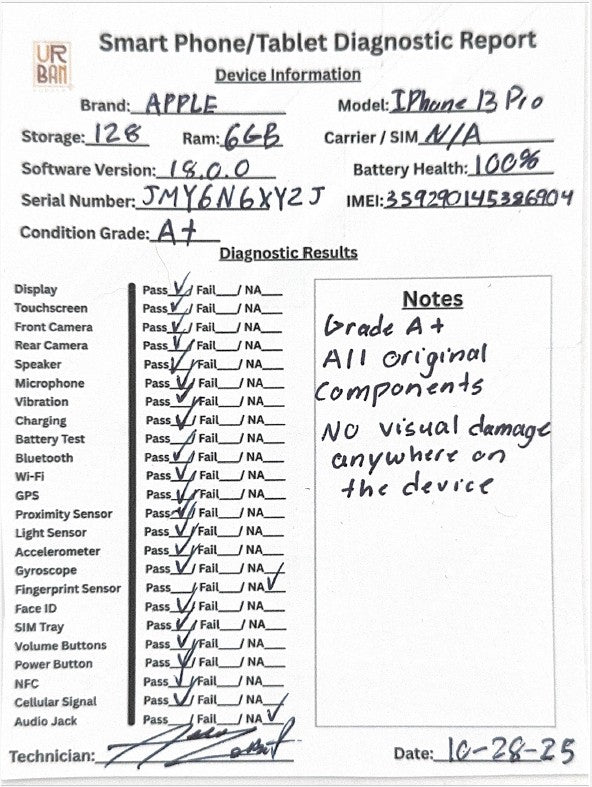 URBAN
Smart Phone/Tablet Diagnostic Report
Device Information
Brand: APPLE Model: IPhone 13 Pro
Storage: 128 Ram: 6GB Carrier / SIM N/A
Software Version: 18.0.0 Battery Health: 100%
Serial Number: JMY6N6XY2J IMEI: 359290145386904
Condition Grade: A+
Diagnostic Results
Display Pass ✓ / Fail / NA
Touchscreen Pass ✓ / Fail / NA
Front Camera Pass ✓ / Fail / NA
Rear Camera Pass ✓ / Fail / NA
Speaker Pass ✓ / Fail / NA
Microphone Pass ✓ / Fail / NA
Vibration Pass ✓ / Fail / NA
Charging Pass ✓ / Fail / NA
Battery Test Pass ✓ / Fail / NA
Bluetooth Pass ✓ / Fail / NA
Wi-Fi Pass ✓ / Fail / NA
GPS Pass ✓ / Fail / NA
Proximity Sensor Pass ✓ / Fail / NA
Light Sensor Pass ✓ / Fail / NA
Accelerometer Pass ✓ / Fail / NA
Gyroscope Pass ✓ / Fail / NA
Fingerprint Sensor Pass / Fail / NA ✓
Face ID Pass ✓ / Fail / NA
SIM Tray Pass ✓ / Fail / NA
Volume Buttons Pass ✓ / Fail / NA
Power Button Pass ✓ / Fail / NA
NFC Pass ✓ / Fail / NA
Cellular Signal Pass ✓ / Fail / NA
Audio Jack Pass / Fail / NA ✓
Notes
Grade A+
All original
components
No visual damage
anywhere on
the device
Technician:
Date: 10-28-25